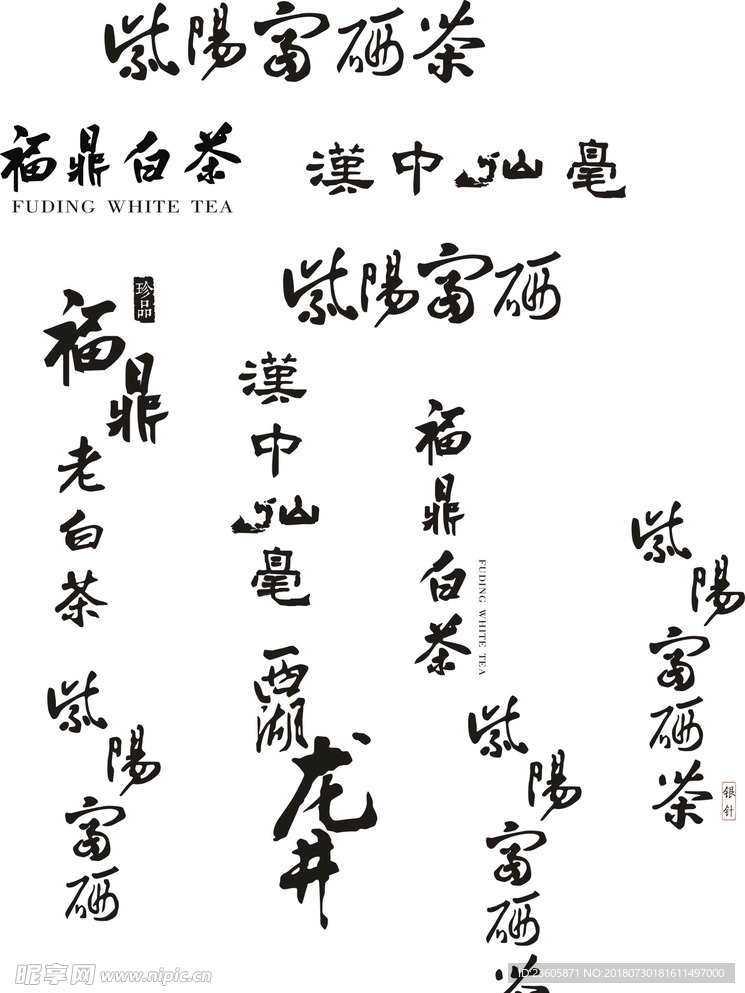 紫陽富硒茶
福鼎白茶
FUDING WHITE TEA
漢中仙毫
紫陽富硒
珍品
福鼎老白茶
漢中仙毫
福鼎白茶
FUDING WHITE TEA
紫陽富硒茶
银针
紫陽富硒
西湖龙井
紫陽富硒茶
昵享网 www.nipic.cn
ID:23605871 NO:20180730181611497000